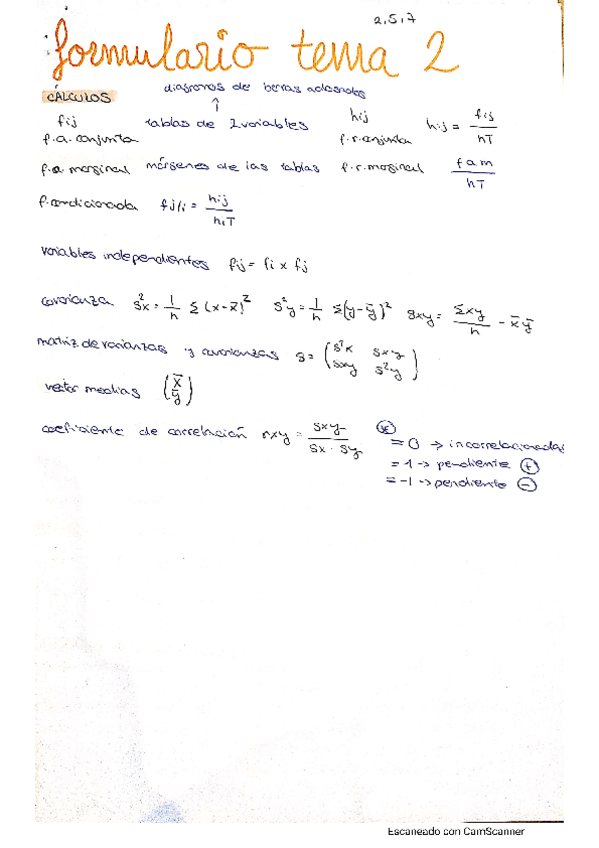 2,5,7
formulario tema 2
diagramas de barras adosadas
CÁLCULOS
↑
fij tablas de 2 variables hij hij = fij / nT
f.a. conjunta f.r. conjunta
f.a. marginal márgenes de las tablas f.r. marginal f a m / nT
f. condicionada fj/i = hij / hiT
variables independientes fij = fi x fj
covarianza s²x = 1/n Σ (x-x̄)² s²y = 1/n Σ(y-ȳ)² sxy = Σxy / n - x̄ȳ
matriz de varianzas y covarianzas s = (s²x sxy
sxy s²y)
vector medias (x̄
ȳ)
coeficiente de correlación rxy = sxy / sx · sy
= 0 → incorrelacionadas
= 1 → pendiente +
= -1 → pendiente −
Escaneado con CamScanner